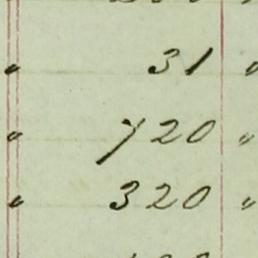 " 31 "
" 720 "
" 320 "